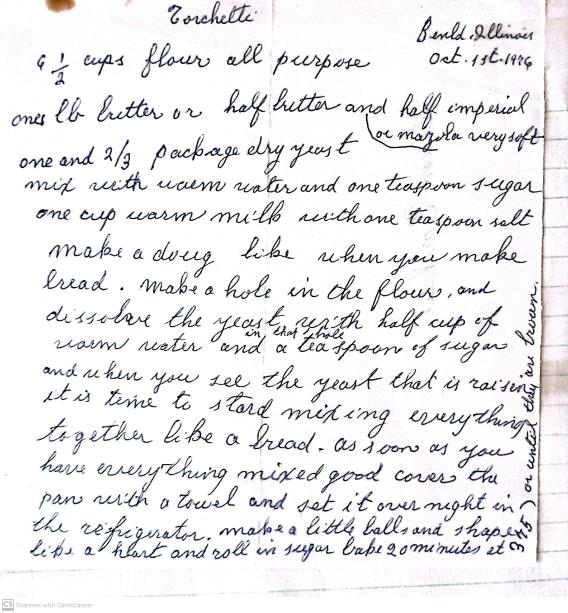 Torchetti
Benld, Illinois
Oct. 1st. 1976
6 1/2 cups flour all purpose
ones lb butter or half butter and half imperial
or mazola very soft
one and 2/3 package dry yeast
mix with warm water and one teaspoon sugar
one cup warm milk with one teaspoon salt
make a doug like when you make
bread. make a hole in the flour, and
dissolave the yeast with half cup of
in that hole
warm water and a teaspoon of sugar
and when you see the yeast that is raisen
it is time to stard mixing everything
together like a bread. as soon as you
have everything mixed good cover the
pan with a towel and set it over night in
the refrigirator. make a little balls and shape
like a heart and roll in sugar bake 20 minutes at
375) or until they are brown.
CS Scanned with CamScanner